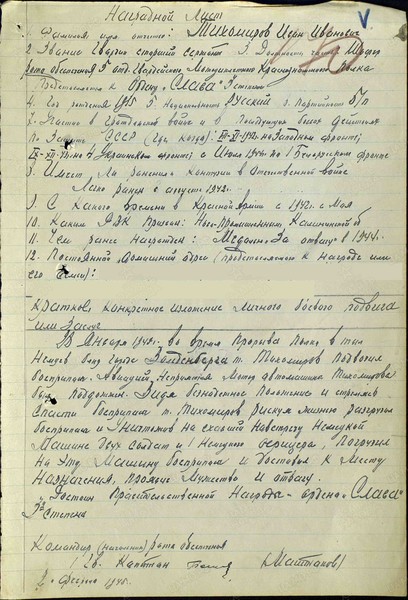 Наградной лист
1. Фамилия имя отчество: Тихомиров Иван Иванович
2. Звание Гвардии старший сержант 3. Должность часть Шофер
рота обеспечения 5 отд. Гвардейского Мотоциклетного Краснознаменного Полка
Представляется к Ордену "Слава" степени
4. Год рождения 1915 5. Национальность Русский 6. Партийность б/п
7. Участие в гражданской войне и в последующих боевых действиях
по защите СССР (где, когда): на Западном фронте;
4 Украинском фронте; с Июля 1944 г. на 1 Белорусском фронте
8. Имеет ли ранения и контузии в Отечественной войне
Легко ранен в августе 1942 г.
9. С какого времени в Красной Армии с 1942 г. Мая
10. Каким РВК призван: Калининской об
11. Чем ранее награжден: Медалью "За отвагу" в 1944 г.
12. Постоянный домашний адрес (представляемого к награде или
его семьи):
Краткое, конкретное изложение личного боевого подвига
или заслуг
28 января 1945 г. во время прорыва полка в тыл
немцев близ города т. Тихомиров подвозил
боеприпасы. Авиацией неприятеля мотор автомашины Тихомирова
был подожжен. Видя безнадежное положение и стремясь
спасти боеприпасы т. Тихомиров рискуя жизнью разгрузил
боеприпасы и уничтожив на ехавшей навстречу немецкой
машине двух солдат и 1 немецкого офицера, погрузил
на эту машину боеприпасы и доставил к месту
назначения, проявив мужество и отвагу.
Достоин Правительственной Награды - ордена "Слава"
степени
Командир роты обеспечения
Гв. Капитан
февраля 1945 г.